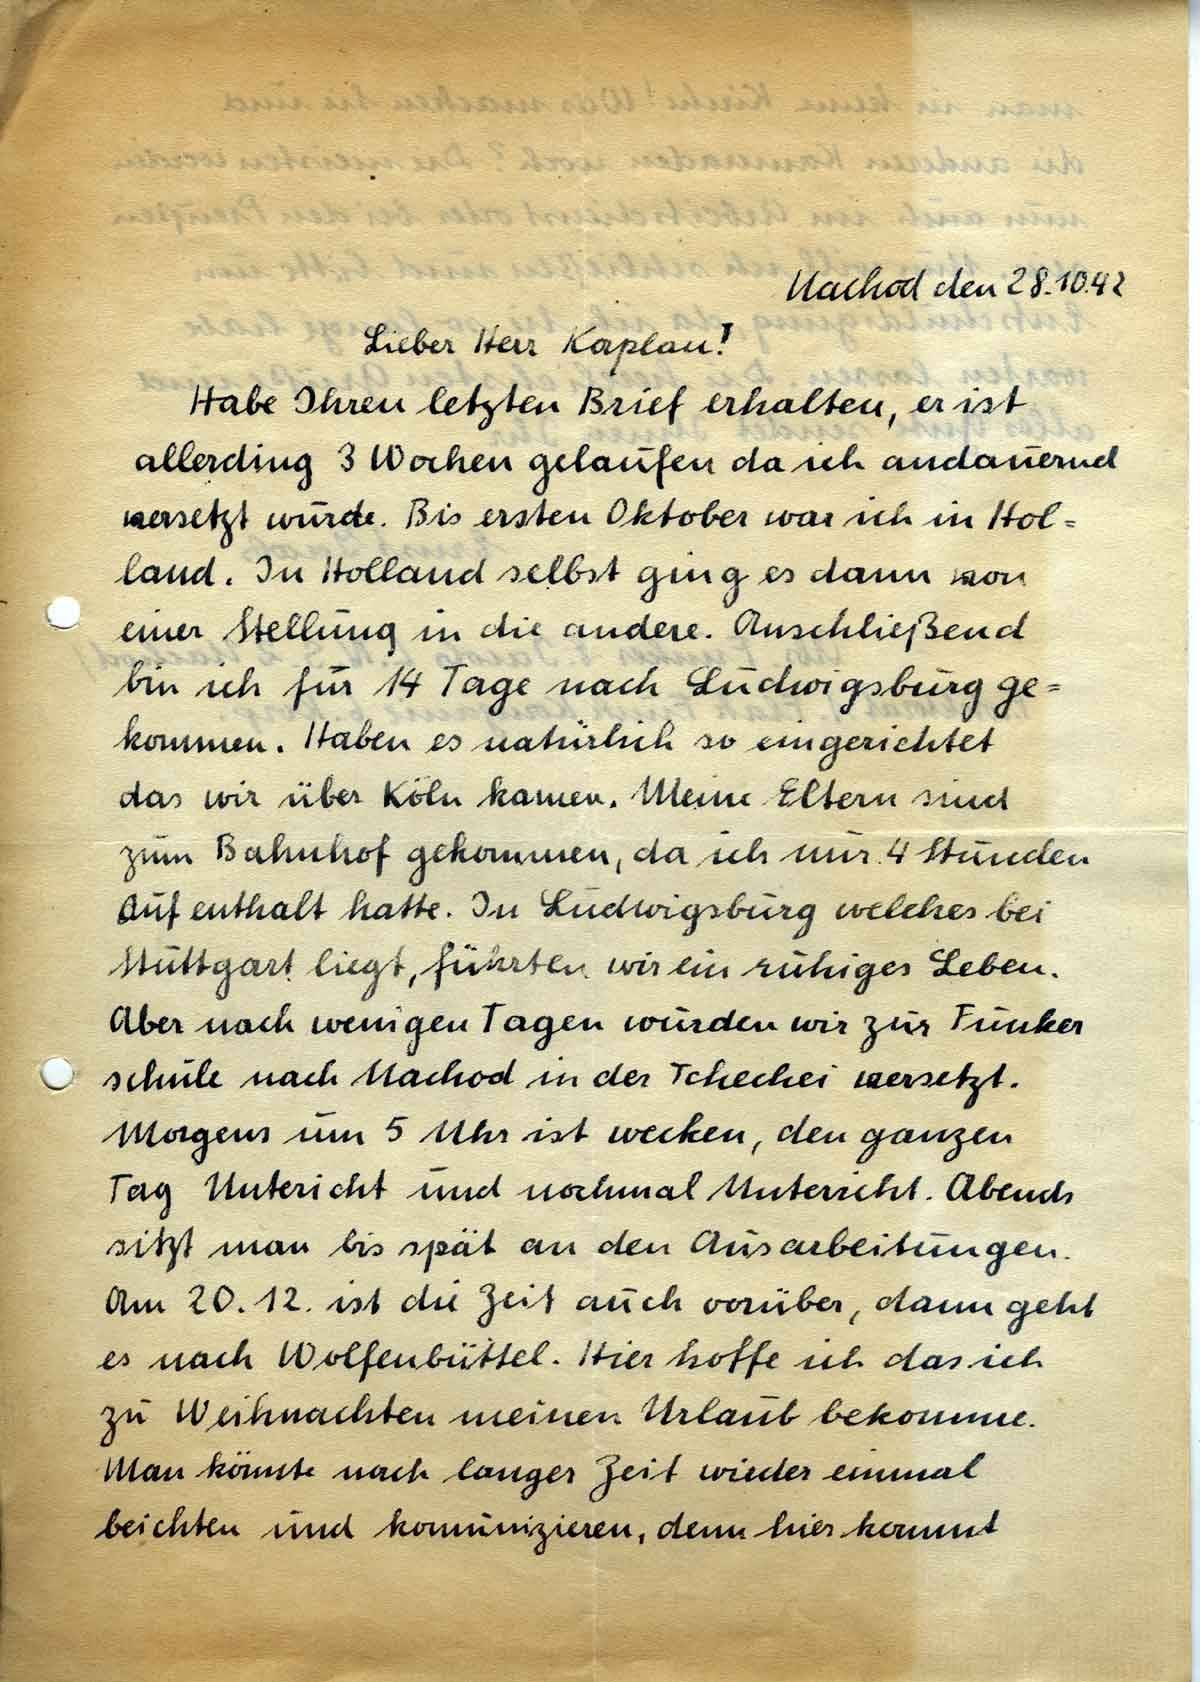 Nachod den 28.10.42
Lieber Herr Kaplan!
Habe Ihren letzten Brief erhalten, er ist
allerding 3 Wochen gelaufen da ich andauernd
versetzt wurde. Bis ersten Oktober war ich in Hol=
land. In Holland selbst ging es dann von
einer Stellung in die andere. Anschließend
bin ich für 14 Tage nach Ludwigsburg ge=
kommen. Haben es natürlich so eingerichtet
das wir über Köln kamen. Meine Eltern sind
zum Bahnhof gekommen, da ich nur 4 Stunden
Aufenthalt hatte. In Ludwigsburg welches bei
Stuttgart liegt, führten wir ein ruhiges Leben.
Aber nach wenigen Tagen wurden wir zur Funker
schule nach Nachod in der Tchechei versetzt.
Morgens um 5 Uhr ist wecken, den ganzen
Tag Untericht und nochmal Unterricht. Abends
sitzt man bis spät an den Ausarbeitungen.
Am 20.12. ist die Zeit auch vorüber, dann geht
es nach Wolfenbüttel. Hier hoffe ich das ich
zu Weihnachten meinen Urlaub bekomme.
Man könnte nach langer Zeit wieder einmal
beichten und komunizieren, denn hier kommt